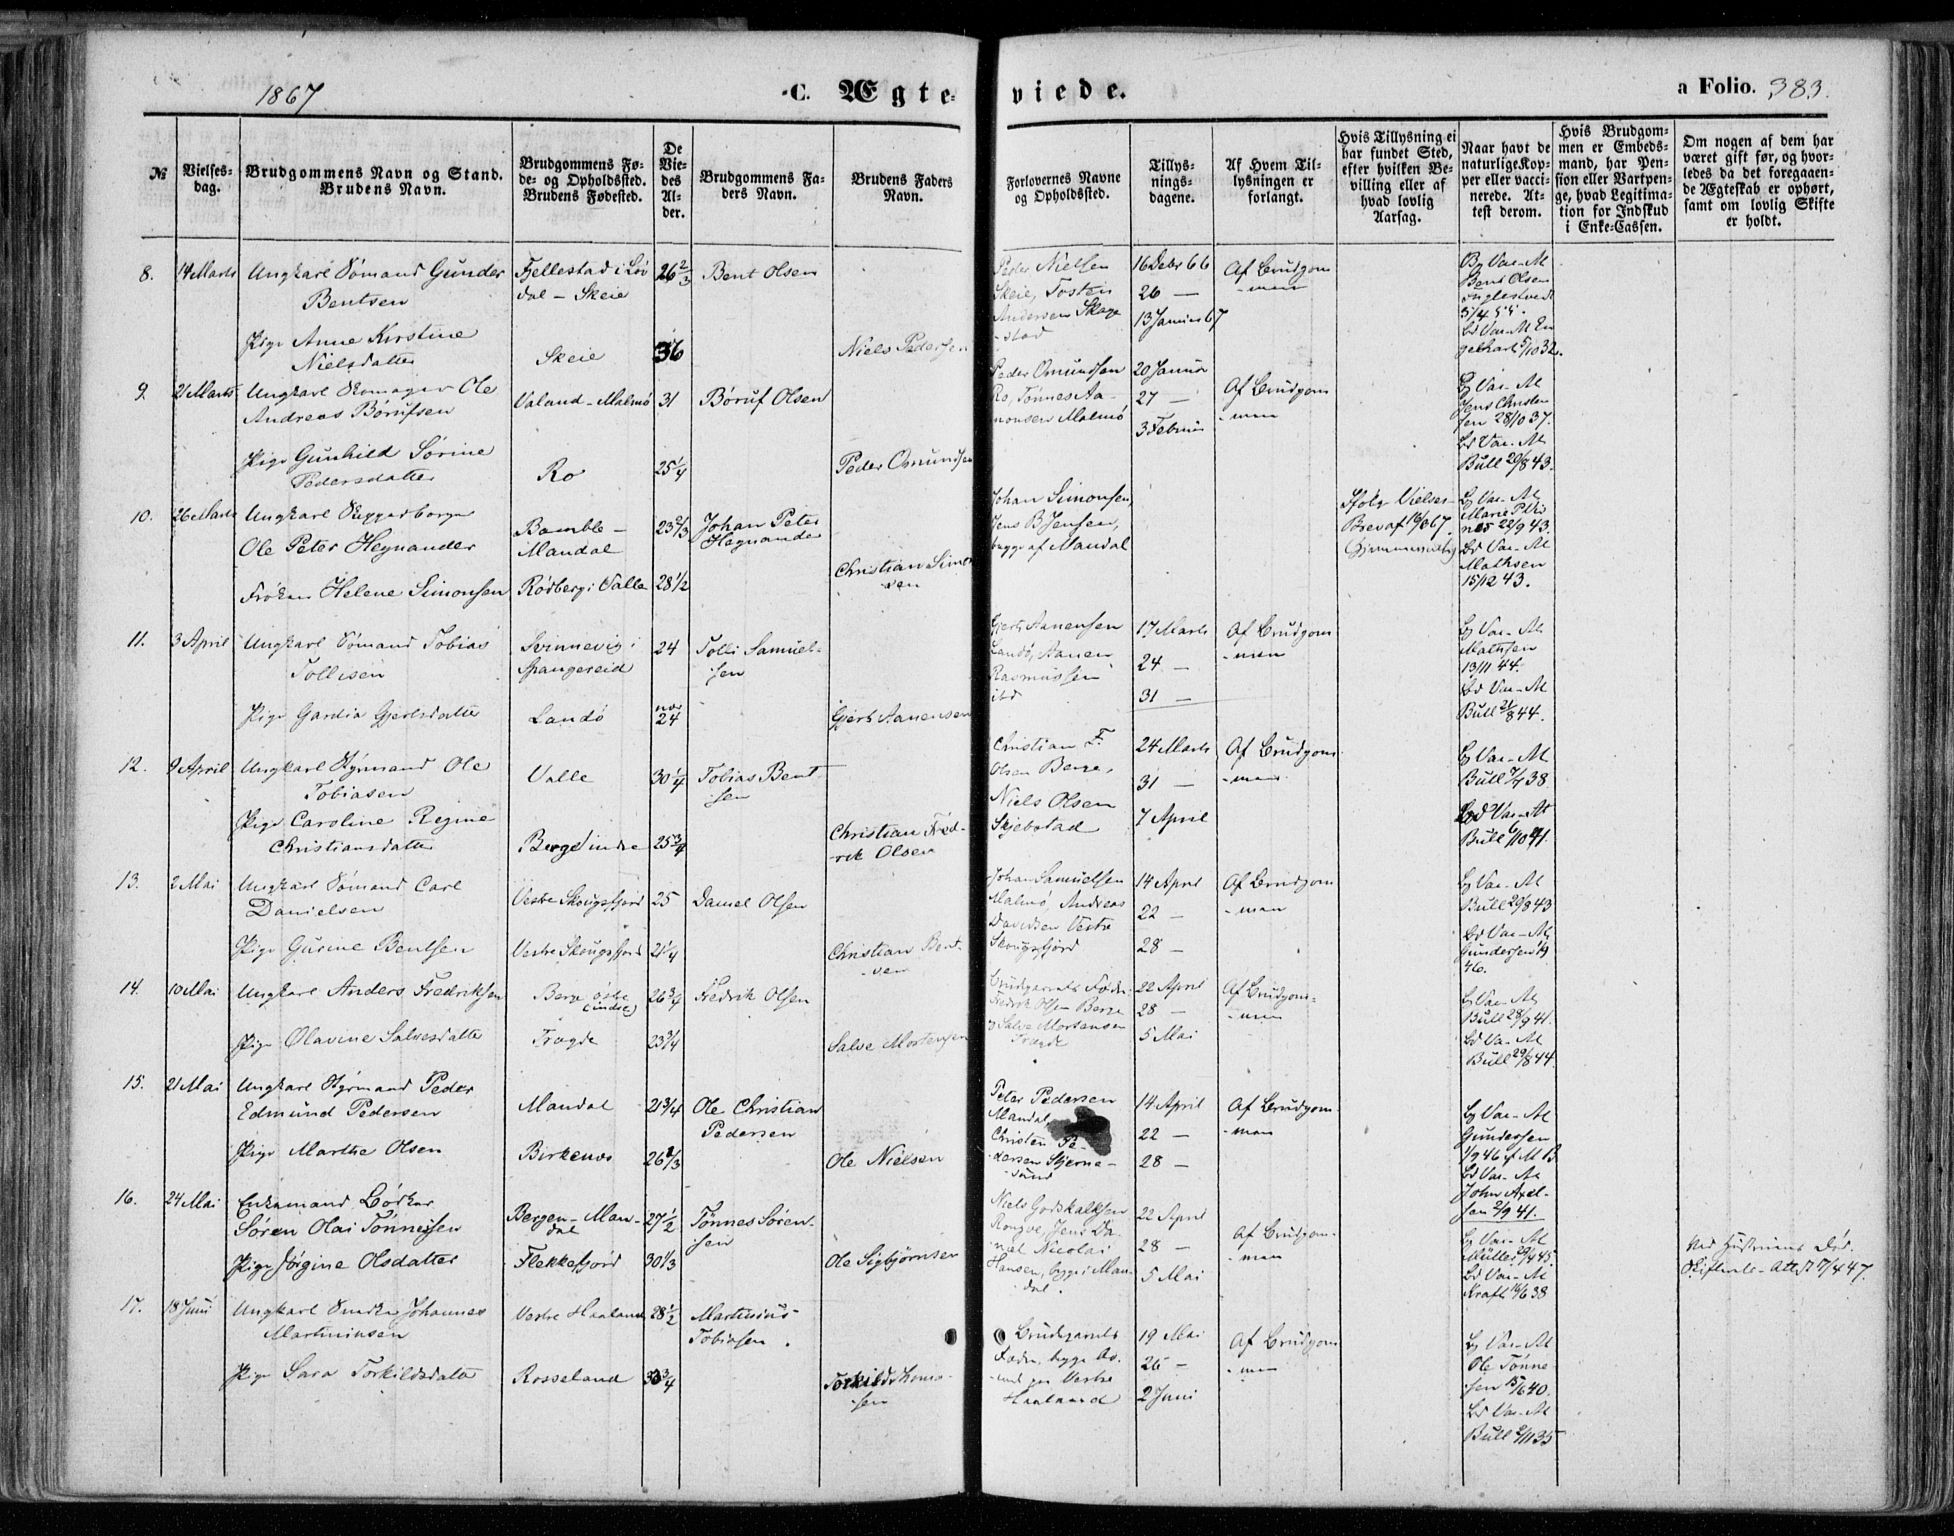 1867
C. Ægteviede.
a Folio. 383.
№
Vielsesdag.
Brudgommens Navn og Stand.
Brudens Navn.
Brudgommens Føde- og Opholdssted.
Brudens Fødested.
De Viedes Alder.
Brudgommens Faders Navn.
Brudens Faders Navn.
Forlovernes Navne og Opholdssted.
Tillysningsdagene.
Af Hvem Tillysningen er forlangt.
Hvis Tillysning ei har fundet Sted, efter hvilken Bevilling eller af hvad lovlig Aarsag.
Naar havt de naturlige Kopper eller vaccinerede. Attest derom.
Hvis Brudgommen er Embedsmand, har Pension eller Vartpenge, hvad Legitimation for Indskud i Enke-Cassen.
Om nogen af dem har været gift før, og hvorledes da det foregaaende Ægteskab er ophørt, samt om lovlig Skifte er holdt.
8. 14 Marts Ungkarl Sømand Gunder Bentsen
Fjellestad i Løvdal – Skeie 26 2/3 Bent Olsen
Pige Anne Kirstine Nielsdatter
Skeie 36 Niels Pedersen
Peder Nielsen Skeie, Tosten Andersen Skagestad
16 Decbr 66
26 —
13 Januar 67
Af Brudgommen
Bg Vac-At Bent Olsen
5/4 55.
Bd Vac-At Engelhart 5/10 32.
9. 21 Marts Ungkarl Skomager Ole Andreas Børufsen
Valand – Malmø 31 Børuf Olsen
Pige Gunhild Sørine Pedersdatter
Ro 25 1/4 Peder Omundsen
Peder Omundsen Ro, Tønnes Aamonsen Malmø
20 Januar
27 —
3 Februar
Af Brudgommen
Bg Vac-At Jens Christensen 28/10 37.
Bd Vac-At Bull 20/8 43.
10. 26 Marts Ungkarl Skipperborger Ole Peter Hegnander
Bamble – Mandal 23 2/3 Johan Peter Hegnander
Frøken Helene Simonsen
Rødberg i Valle 28 1/2 Christian Simonsen
Johan Simonsen, Jens B Jensen, begge af Mandal
Ifølge Vielses-Brev af
Bg Vac-At Marie P. 22/9 43.
Bd Vac-At Mathsen 15/12 43.
11. 3 April Ungkarl Sømand Tobias Tollisen
Svinnevig i Spangereid 24 Tolli Samuelsen
Pige Gardia Gjertsdatter
Landø nær 24 Gjert Aanensen
Gjert Aanensen Landø, Aanen Rasmussen ibd
17 Marts
24 —
31 —
Af Brudgommen
Bg Vac-At Mathsen 13/11 44.
Bd Vac-At Bull 21/8 44.
12. 9 April Ungkarl Styrmand Ole Tobiasen
Valle 30 1/4 Tobias Bentsen
Pige Caroline Regine Christiansdatter
Berge indre 25 3/4 Christian Fredrik Olsen
Christian F. Olsen Berge, Niels Olsen Skjebstad
24 Marts
31 —
7 April
Af Brudgommen
Bg Vac-At Bull 7/7 38.
Bd Vac-At Bull 6/10 41.
13. 2 Mai Ungkarl Sømand Carl Danielsen
Vestre Skougsfjord 25 Daniel Olsen
Pige Gurine Bentsen
Vestre Skougsfjord 21 1/4 Christian Bentsen
Johan Samuelsen Malmø, Andreas Davidsen Vestre Skougsfjord
14 April
22 —
28 —
Af Brudgommen
Bg Vac-At Bull 29/8 43
Bd Vac-At Gundersen 46.
14. 10 Mai Ungkarl Anders Fredriksen
Berge østre (indre) 26 3/4 Fredrik Olsen
Pige Olavine Salvesdatter
Tregde 23 3/4 Salve Mortensen
Brudgarnets Fædre Fredrik Olsen Berge & Salve Mortensen Tregde
22 April
28 —
5 Mai
Af Brudgommen
Bg Vac-At Bull 28/9 41.
Bd Va-At Bull 29/8 44.
15. 21 Mai Ungkarl Styrmand Peder Edmund Pedersen
Mandal 21 3/4 Ole Christian Pedersen
Pige Marthe Olsen
Birkenes 26 2/3 Ole Nielsen
Peter Pedersen Mandal, Christen Pedersen Skjernesund
14 April
22 —
28 —
Af Brudgommen
Bg Vac-At Gundersen 1/9 46
Bd Vac-At John Axelsen 2/9 41.
16. 24 Mai Enkemand Bødker Søren Olai Tønnessen
Bergen – Mandal 27 1/2 Tønnes Sørensen
Pige Jørgine Olsdatter
Flekkefjord 30 1/3 Ole Sigbjørnsen
Niels Godskalksen Rongve, Jens Daniel Nicolai Hansen, begge i Mandal.
22 April
28 —
5 Mai
Af Brudgommen
Bg Vac-At Müller 29/4 45.
Bd Vac-At Kraft 16/6 38
Ved Hustruens Død. Skifte
17. 18 Juni Ungkarl Smed Johannes Martininsen
Vestre Haaland 28 1/2 Martinius Tobiasen.
Pige Sara Torkildsdatter
Rosseland 33 3/4 Torkild
Brudgarnets Fædre, begge Vestre Haaland
19 Mai
26 —
2 Juni
Af Brudgommen
Bg Vac-At Ole Tønnesen 15/6 40.
Bd Vac-At Bull 6/11 35